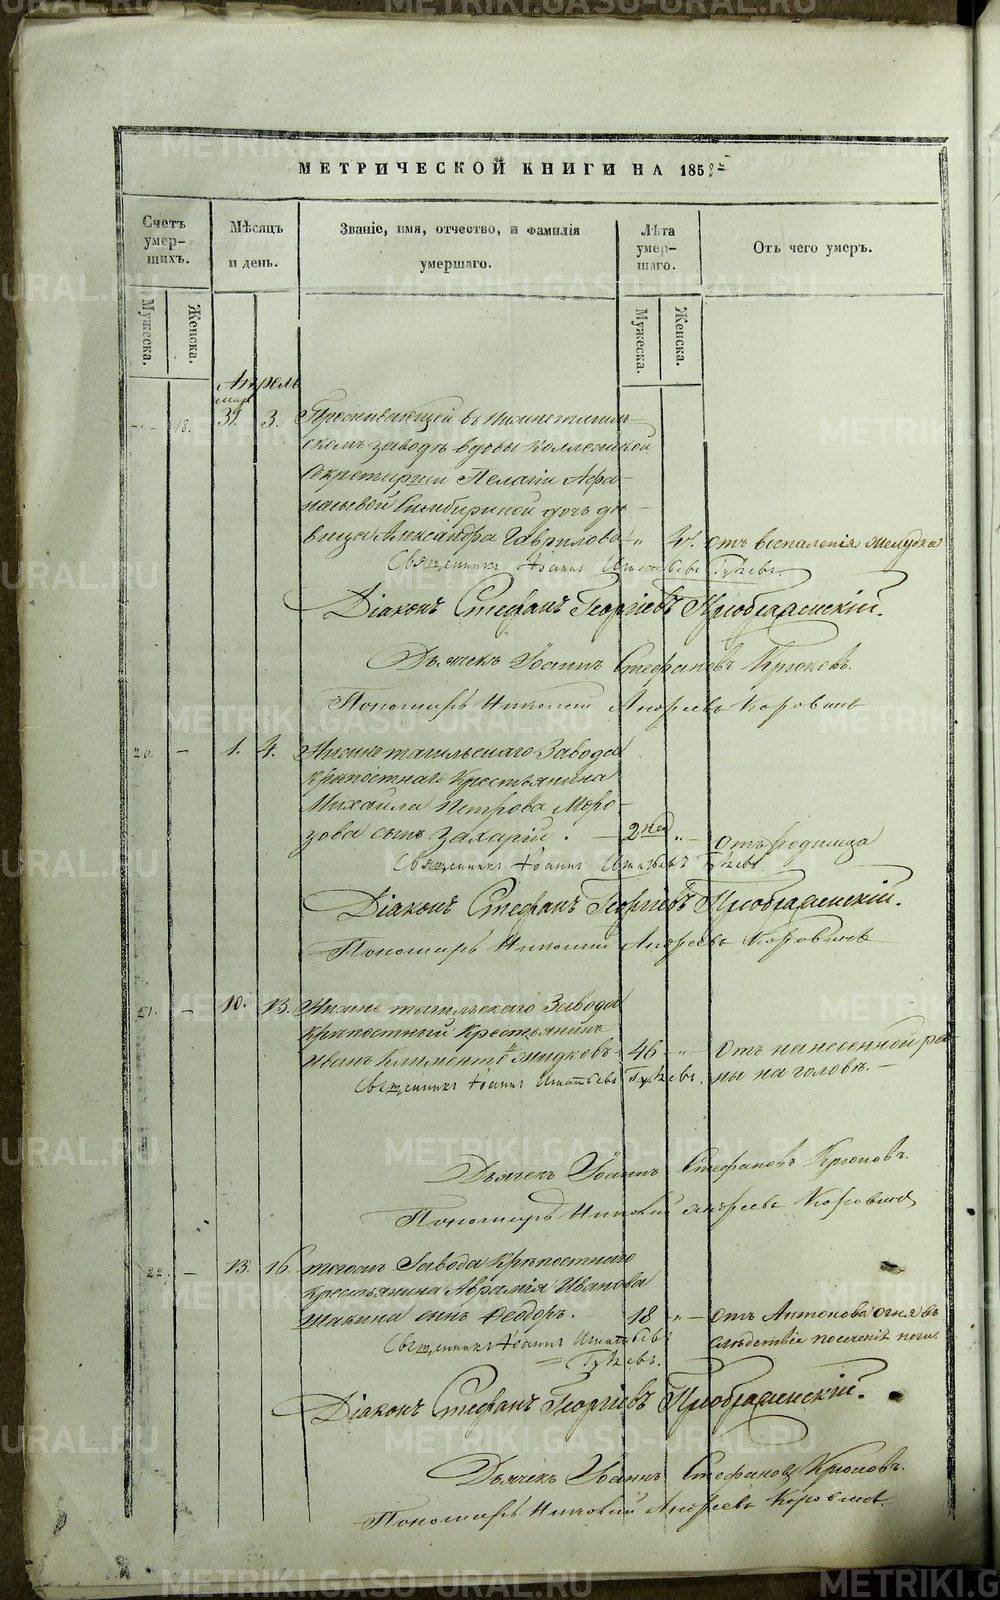 МЕТРИЧЕСКОЙ КНИГИ НА 1858
Счетъ умер-шихъ.
Мужеска.
Женска.
Мѣсяцъ и день.
Званіе, имя, отчество, и фамилія умершаго.
Лѣта умер-шаго.
Мужеска.
Женска.
Отъ чего умеръ.
Апрель
мар.
18. 31. 3. Проживающей въ Нижнетагиль-
скомъ заводѣ вдовы Коллежской
Секретарши Пелагіи Афа-
насьевой дочь дѣ-
вица Александра Гаврилова „ отъ воспаленія желудка
Священникъ Іоаннъ Игнатьевъ
Діаконъ Стефанъ Георгіевъ Преображенскій.
Дьячекъ Іоаннъ Стефановъ Крюковъ.
Пономарь Николай Андреевъ Коровинъ
20. – 1. 4. Нижнетагильскаго Завода
крѣпостнаго крестьянина
Михаила Петрова Моро-
зова сынъ Захарій. 2 нед „ – отъ родимца
Священникъ Іоаннъ Игнатьевъ
Діаконъ Стефанъ Георгіевъ Преображенскій.
Пономарь Николай Андреевъ Коровинъ
21. – 10. 13. Нижнетагильскаго Завода
крѣпостный крестьянинъ
Иванъ Климентовъ 46 „ – Отъ нанесенной ра-
Священникъ Іоаннъ Игнатьевъ ны на головѣ. –
Дьячекъ Іоаннъ Стефановъ Крюковъ.
Пономарь Николай Андреевъ Коровинъ
22. – 13. 16. Завода крѣпостнаго
крестьянина Аврамія Иванова
сынъ Феодоръ. 18 „ – отъ Антонова огня въ
Священникъ Іоаннъ Игнатьевъ слѣдствіе посеченія ноги.
Діаконъ Стефанъ Георгіевъ Преображенскій.
Дьячекъ Іоаннъ Стефановъ Крюковъ.
Пономарь Николай Андреевъ Коровинъ
METRIKI.GASO-URAL.RU